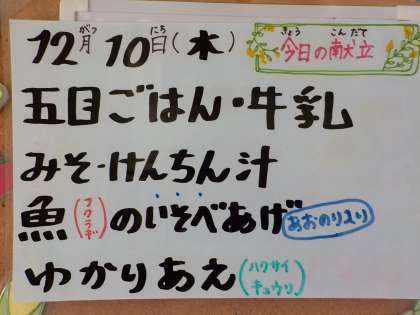 12月10日(木)
がつ にち
きょう こんだて
今日の献立
五目ごはん・牛乳
みそ-けんちん汁
魚(フクラギ)のいそべあげ あおのり入り
ゆかりあえ(ハクサイ キュウリ)